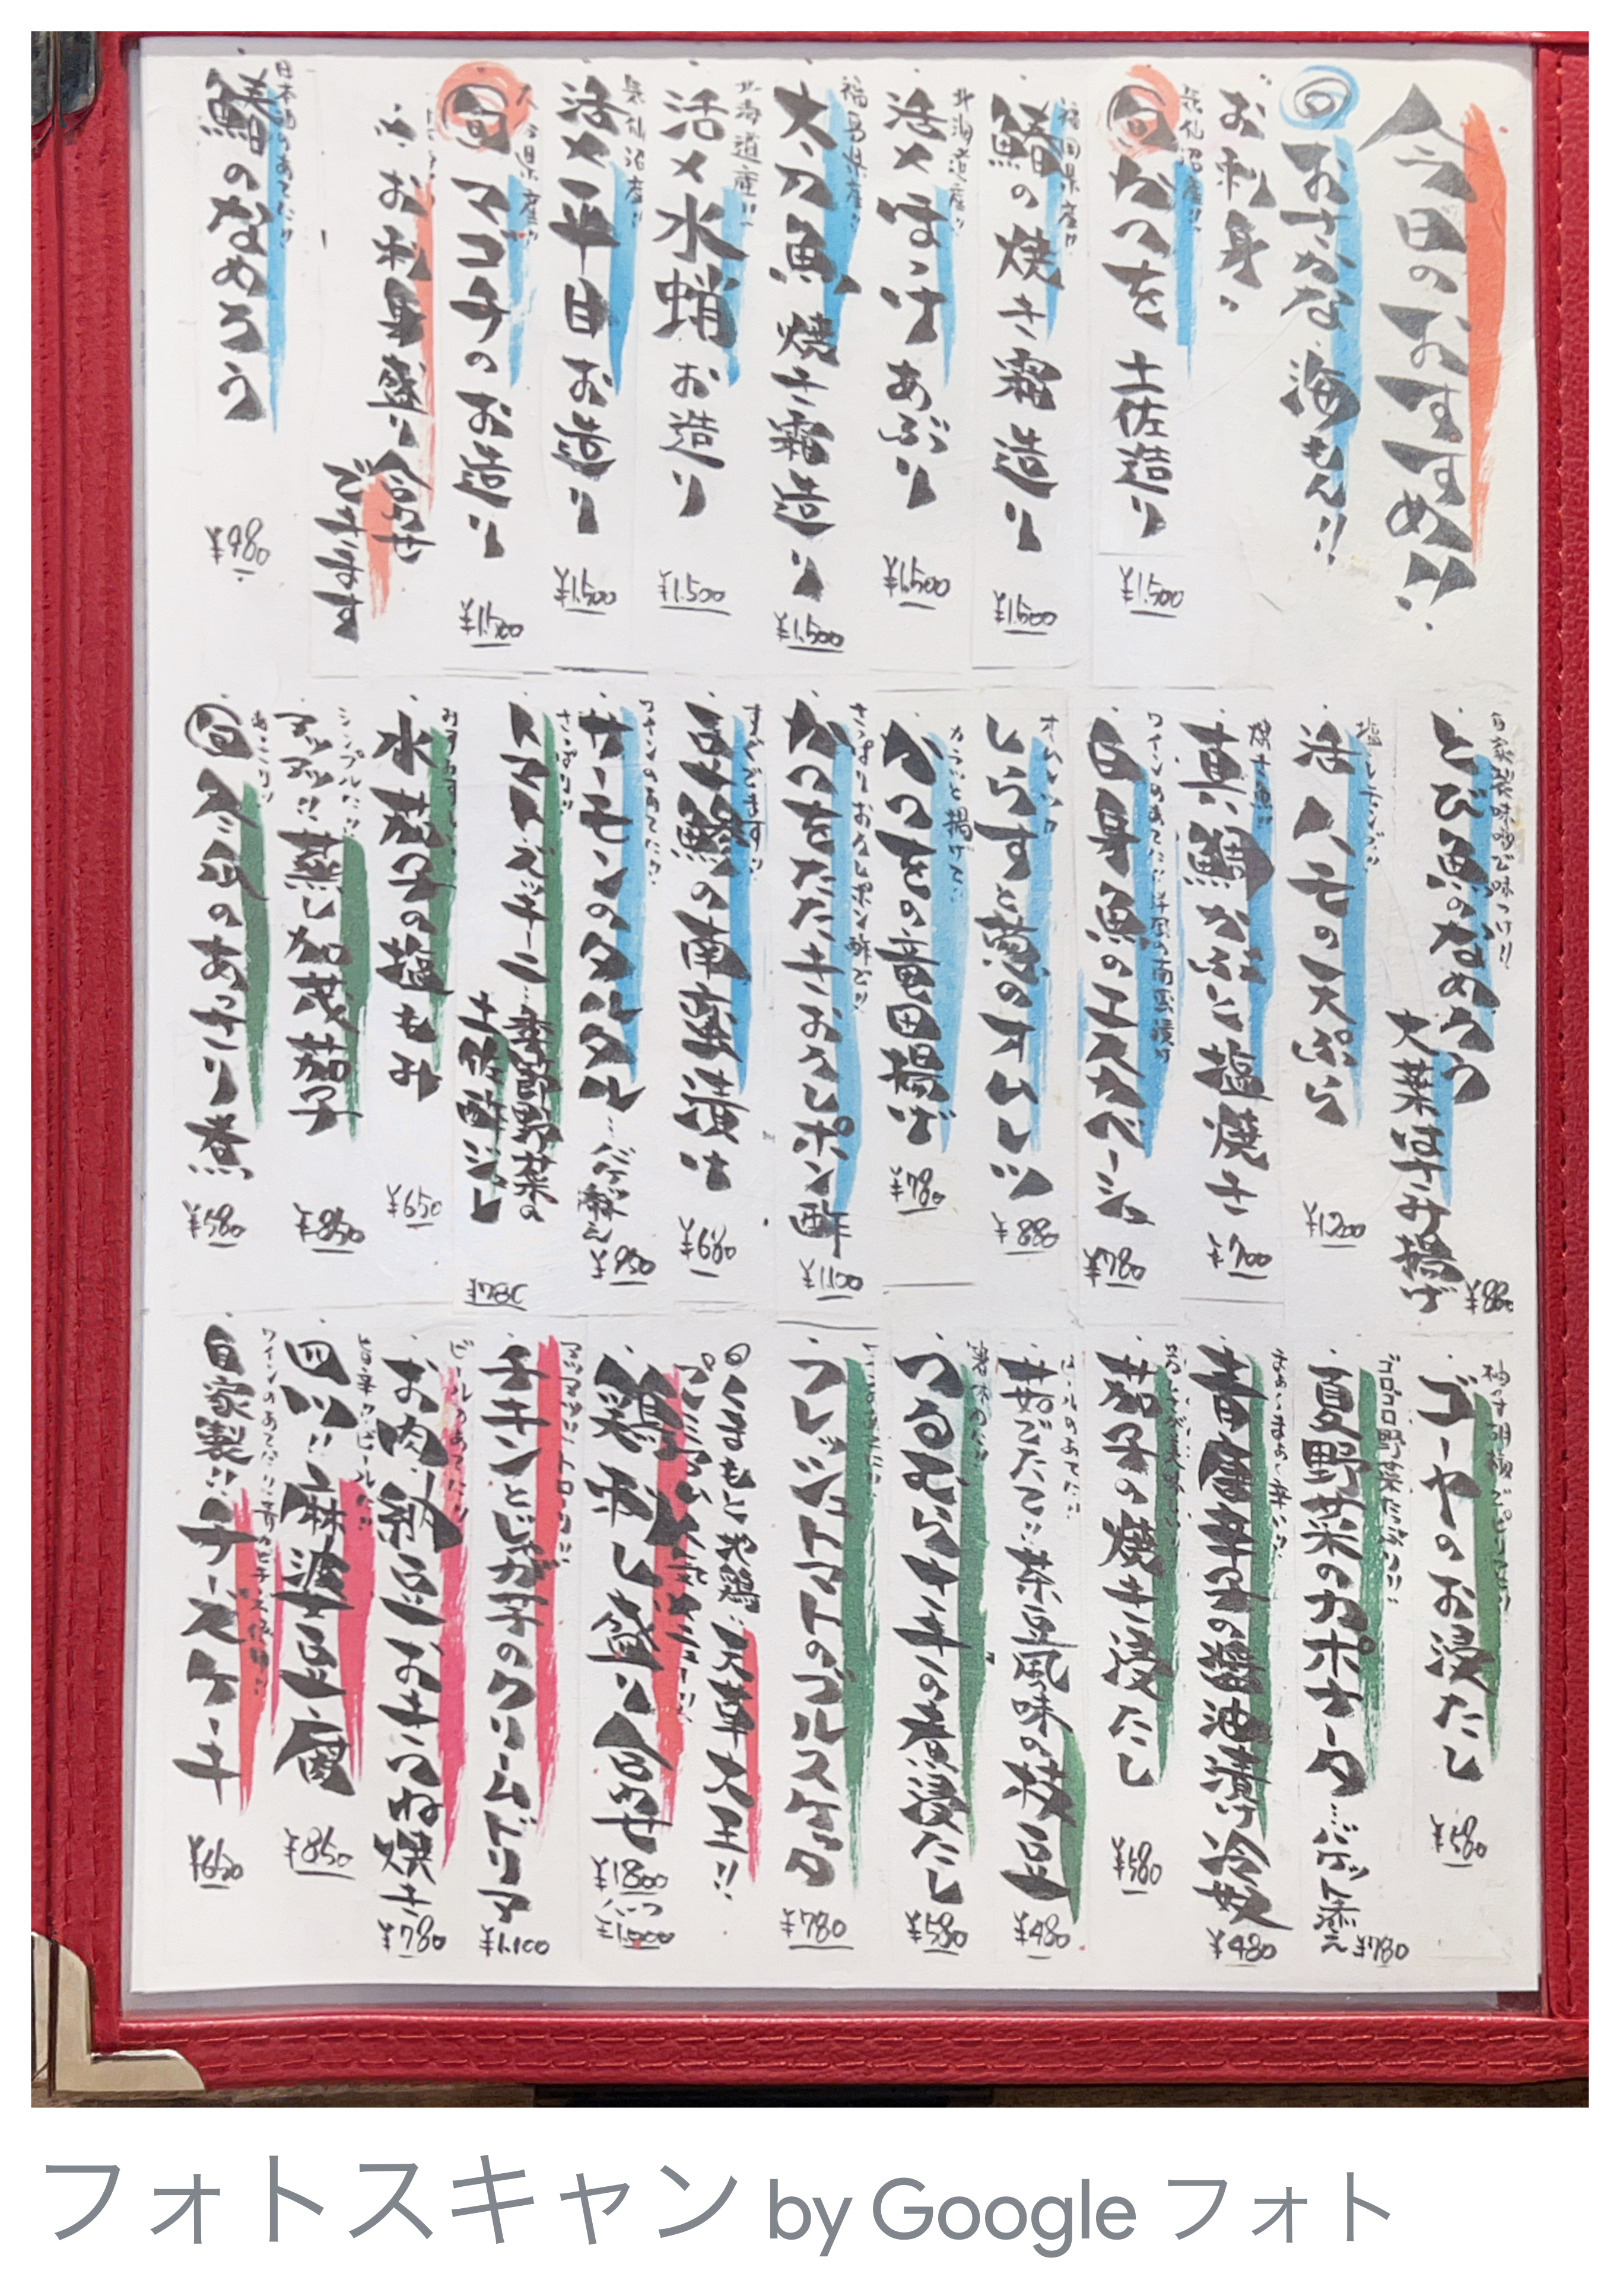 今日のおすすめ!!
旬 おさかな 海もん!!
お刺身
気仙沼産!!
旬 かつを 土佐造り ¥1,500
福岡県産!!
鰆の焼き霜造り ¥1,500
北海道産!!
活〆ほっけ あぶり ¥1,500
福島県産!!
太刀魚 焼き霜造り ¥1,500
北海道産!!
活〆水蛸 お造り ¥1,500
気仙沼産!!
活〆平目 お造り ¥1,500
旬 マゴチの お造り ¥1,500
お刺身盛り合わせ
できます
日本酒のあてに!!
鰆のなめろう ¥980
自家製味噌で味つけ!!
とび魚のなめろう
大葉はさみ揚げ ¥880
活ハモの天ぷら ¥1200
焼き魚!!
真鯛かぶと塩焼き ¥700
ワインのあてに!!洋風の南蛮漬け
白身魚のエスカベーシュ ¥780
オムレツ
しらすと葱のオムレツ ¥880
カラッと揚げて!!
かつをの竜田揚げ ¥780
さっぱりおろしポン酢で!!
かつをたたきおろしポン酢 ¥1,100
すぐできます!!
豆鯵の南蛮漬け ¥680
ワインのあてに!!
サーモンのタルタル…バゲット添え ¥950
さっぱり!!
トマト・ズッキーニ…季節野菜の
土佐酢ジュレ ¥780
水茄子の塩もみ ¥650
シンプルに!!
アツアツ!!蒸し加茂茄子 ¥850
旬 冬瓜のあっさり煮 ¥580
柚子胡椒でピリッと!!
ゴーヤのお浸たし ¥580
ゴロゴロ野菜たっぷり!!
夏野菜のカポナータ…バゲット添え ¥780
青唐辛子の醤油漬け冷奴 ¥480
茄子の焼き浸たし ¥580
ビールのあてに!!
茹でたて!!茶豆風味の枝豆 ¥480
つるむらさきの煮浸たし ¥580
フレッシュトマトのブルスケッタ ¥780
くまもと地鶏!!天草大王!!
鶏刺し盛り合わせ ¥1800
アツアツ!!トロ〜リ!!
チキンとじゃが芋のクリームドリア ¥1,100
ビールのあてに!!
お肉納豆おきつね焼き ¥780
旨辛!!ビールに!!
四川!!麻婆豆腐 ¥850
自家製!!チーズケーキ ¥650
フォトスキャン by Google フォト